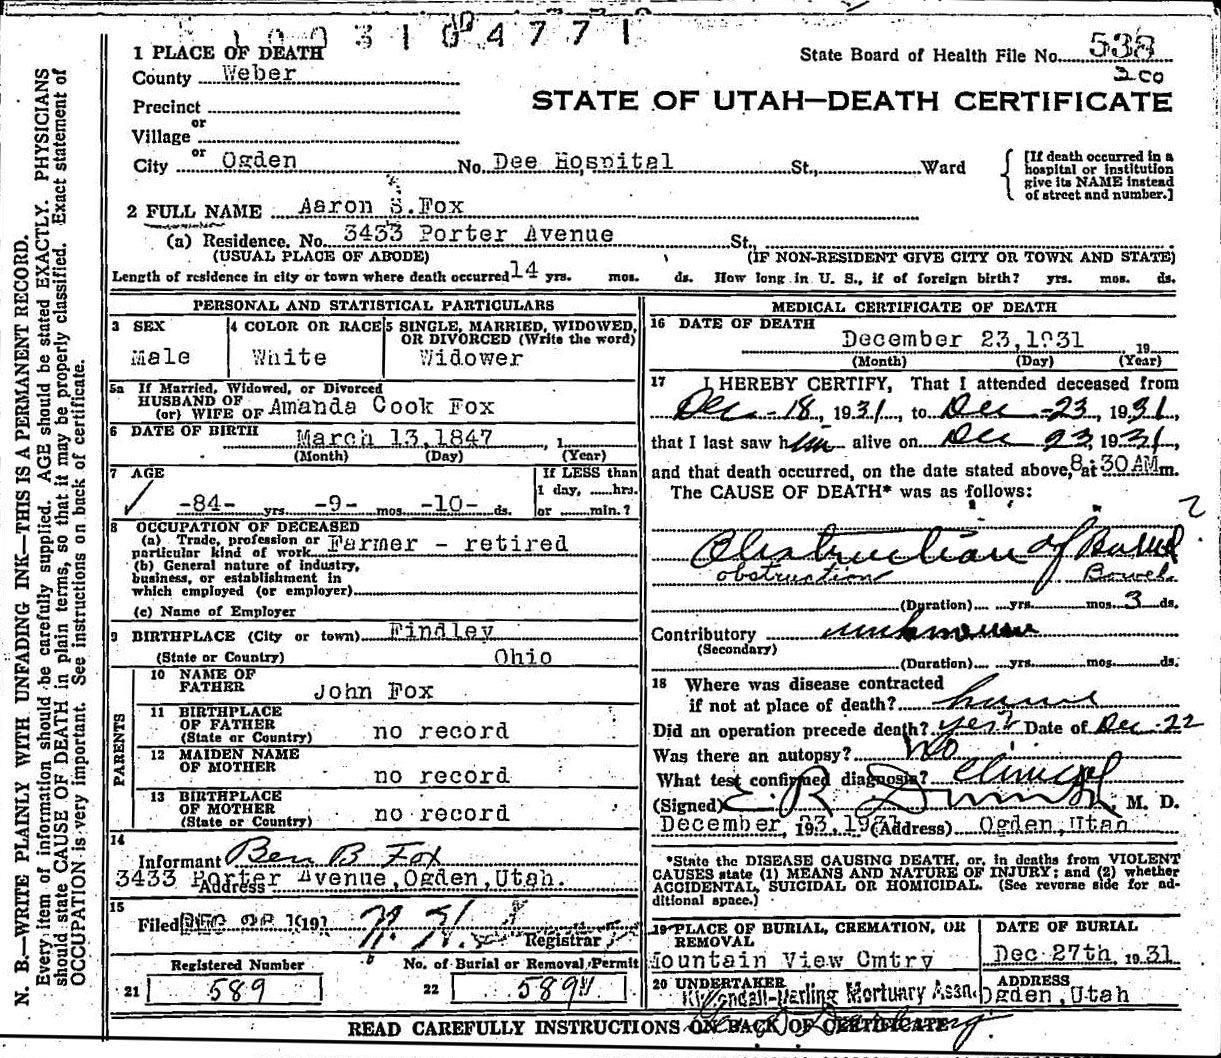 1 0 0 3 1 0 4 7 7 1
1 PLACE OF DEATH
State Board of Health File No. 538
County Weber
200
STATE OF UTAH—DEATH CERTIFICATE
Precinct
or
Village
or
City Ogden No. Dee Hospital St., Ward
[If death occurred in a hospital or institution give its NAME instead of street and number.]
2 FULL NAME Aaron S. Fox
(a) Residence. No. 3433 Porter Avenue St.,
(USUAL PLACE OF ABODE) (IF NON-RESIDENT GIVE CITY OR TOWN AND STATE)
Length of residence in city or town where death occurred 14 yrs. mos. ds. How long in U. S., if of foreign birth? yrs. mos. ds.
PERSONAL AND STATISTICAL PARTICULARS
3 SEX
Male
4 COLOR OR RACE
White
5 SINGLE, MARRIED, WIDOWED, OR DIVORCED (Write the word)
Widower
5a If Married, Widowed, or Divorced
HUSBAND OF
(or) WIFE OF Amanda Cook Fox
6 DATE OF BIRTH March 13, 1847, 1
(Month) (Day) (Year)
7 AGE
-84- yrs -9- mos -10- ds.
If LESS than
1 day, ......hrs.
or ......min.?
8 OCCUPATION OF DECEASED
(a) Trade, profession or
particular kind of work Farmer - retired
(b) General nature of industry,
business, or establishment in
which employed (or employer)
(c) Name of Employer
9 BIRTHPLACE (City or town) Findley
(State or Country) Ohio
PARENTS
10 NAME OF FATHER John Fox
11 BIRTHPLACE OF FATHER
(State or Country) no record
12 MAIDEN NAME OF MOTHER no record
13 BIRTHPLACE OF MOTHER
(State or Country) no record
14
Informant Ben B Fox
Address 3433 Porter Avenue, Ogden, Utah.
15
Filed DEC 193
Registrar
Registered Number
21 589
No. of Burial or Removal Permit
22 589
MEDICAL CERTIFICATE OF DEATH
16 DATE OF DEATH
December 23, 1931 19
(Month) (Day) (Year)
17 I HEREBY CERTIFY, That I attended deceased from
Dec-18, 1931, to Dec-23, 1931,
that I last saw him alive on Dec 23, 1931,
and that death occurred, on the date stated above, at 8:30 AM m.
The CAUSE OF DEATH* was as follows:
Obstruction of Bowel ?
obstruction Bowel
(Duration) yrs. mos. 3 ds.
Contributory unknown
(Secondary)
(Duration) yrs. mos. ds.
18 Where was disease contracted
if not at place of death? home
Did an operation precede death? yes Date of Dec-22
Was there an autopsy? No
What test confirmed diagnosis? Clinical
(Signed) E. R. , M. D.
December 23, 1931 (Address) Ogden, Utah
*State the DISEASE CAUSING DEATH, or, in deaths from VIOLENT
CAUSES state (1) MEANS AND NATURE OF INJURY; and (2) whether
ACCIDENTAL, SUICIDAL OR HOMICIDAL. (See reverse side for ad-
ditional space.)
19 PLACE OF BURIAL, CREMATION, OR REMOVAL
Mountain View Cmtry
DATE OF BURIAL
Dec 27th, 1931
20 UNDERTAKER
Kirkendall-Darling Mortuary Assn.
ADDRESS
Ogden, Utah
READ CAREFULLY INSTRUCTIONS ON BACK OF CERTIFICATE
N. B.—WRITE PLAINLY WITH UNFADING INK—THIS IS A PERMANENT RECORD.
Every item of information should be carefully supplied. AGE should be stated EXACTLY. PHYSICIANS
should state CAUSE OF DEATH in plain terms, so that it may be properly classified. Exact statement of
OCCUPATION is very important. See instructions on back of certificate.